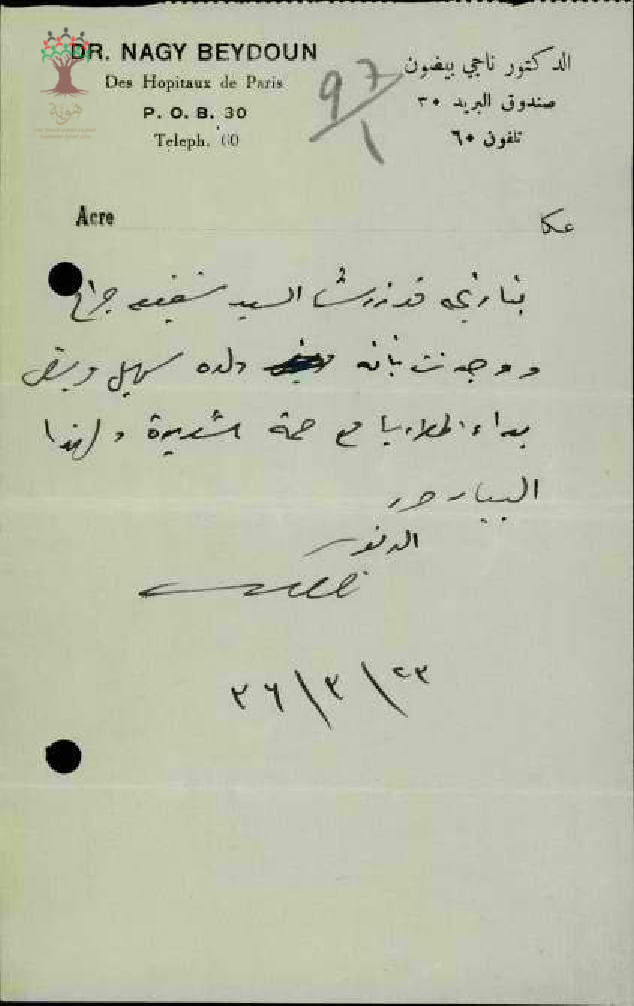 DR. NAGY BEYDOUN
Des Hopitaux de Paris
P. O. B. 30
Teleph. 60
الدكتور ناجي بيضون
صندوق البريد ٣٠
تلفون ٦٠
97/1
هوية
Acre
عكا
بتاريخه قد زرت السيد شفيق جراح
ووجدت بأنه ولده سهيل
بداء الملاريا مع حمة شديدة ولهذا
البيان حرر
الدكتور
٢٣/٣/٣٦